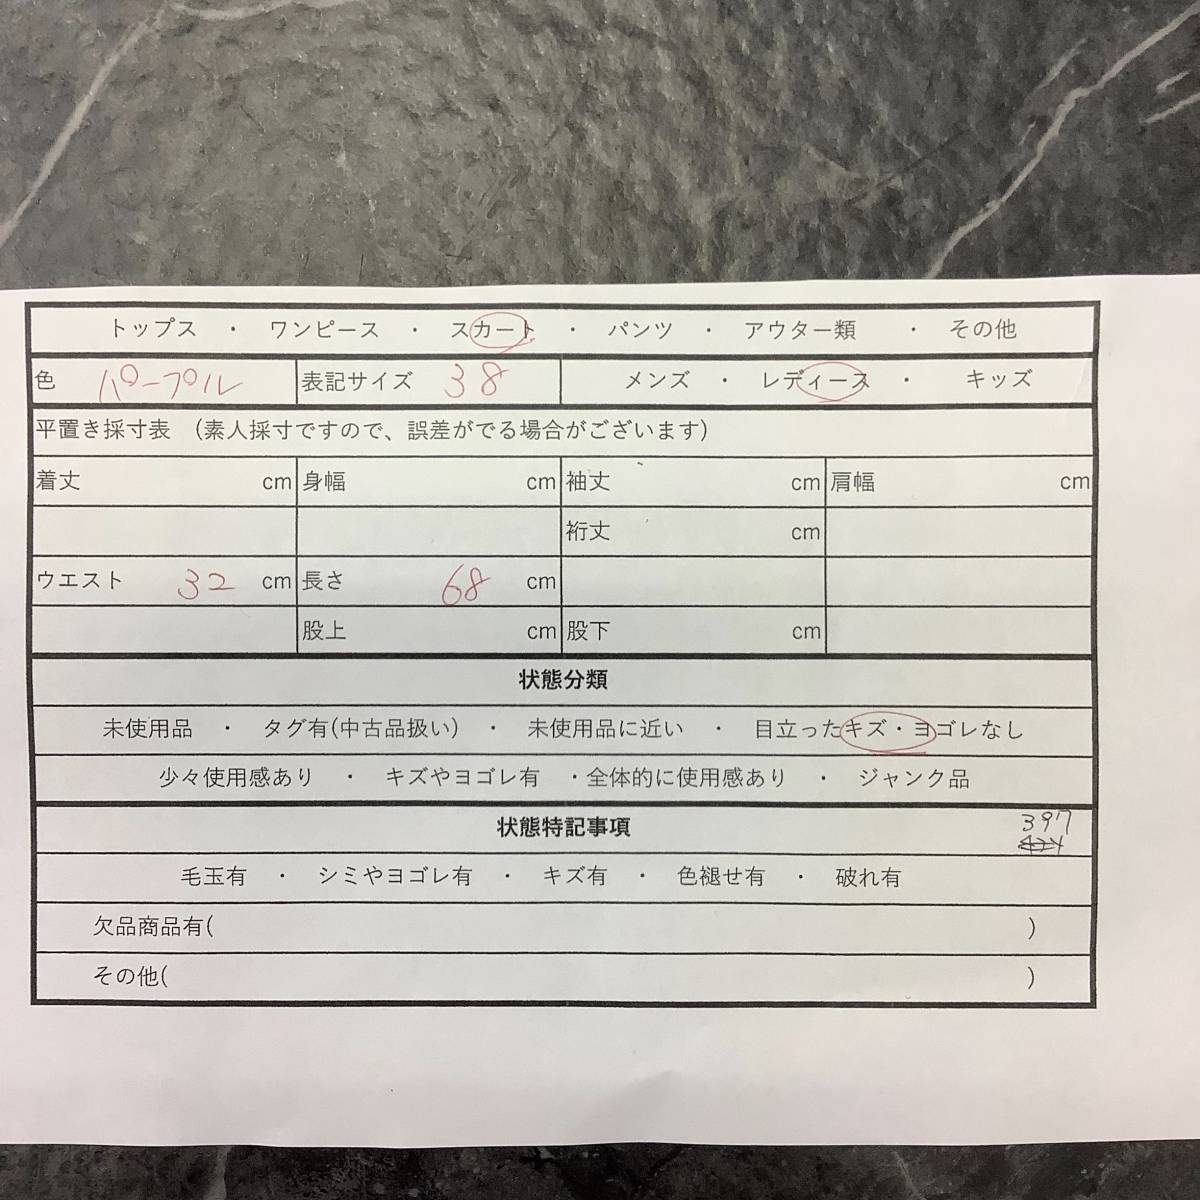 トップス ・ ワンピース ・ スカート ・ パンツ ・ アウター類 ・ その他
色 パープル 表記サイズ 38 メンズ ・ レディース ・ キッズ
平置き採寸表 (素人採寸ですので、誤差がでる場合がございます)
着丈 cm 身幅 cm 袖丈 cm 肩幅 cm
裄丈 cm
ウエスト 32 cm 長さ 68 cm
股上 cm 股下 cm
状態分類
未使用品 ・ タグ有(中古品扱い) ・ 未使用品に近い ・ 目立ったキズ・ヨゴレなし
少々使用感あり ・ キズやヨゴレ有 ・全体的に使用感あり ・ ジャンク品
状態特記事項 397
毛玉有 ・ シミやヨゴレ有 ・ キズ有 ・ 色褪せ有 ・ 破れ有
欠品商品有( )
その他( )